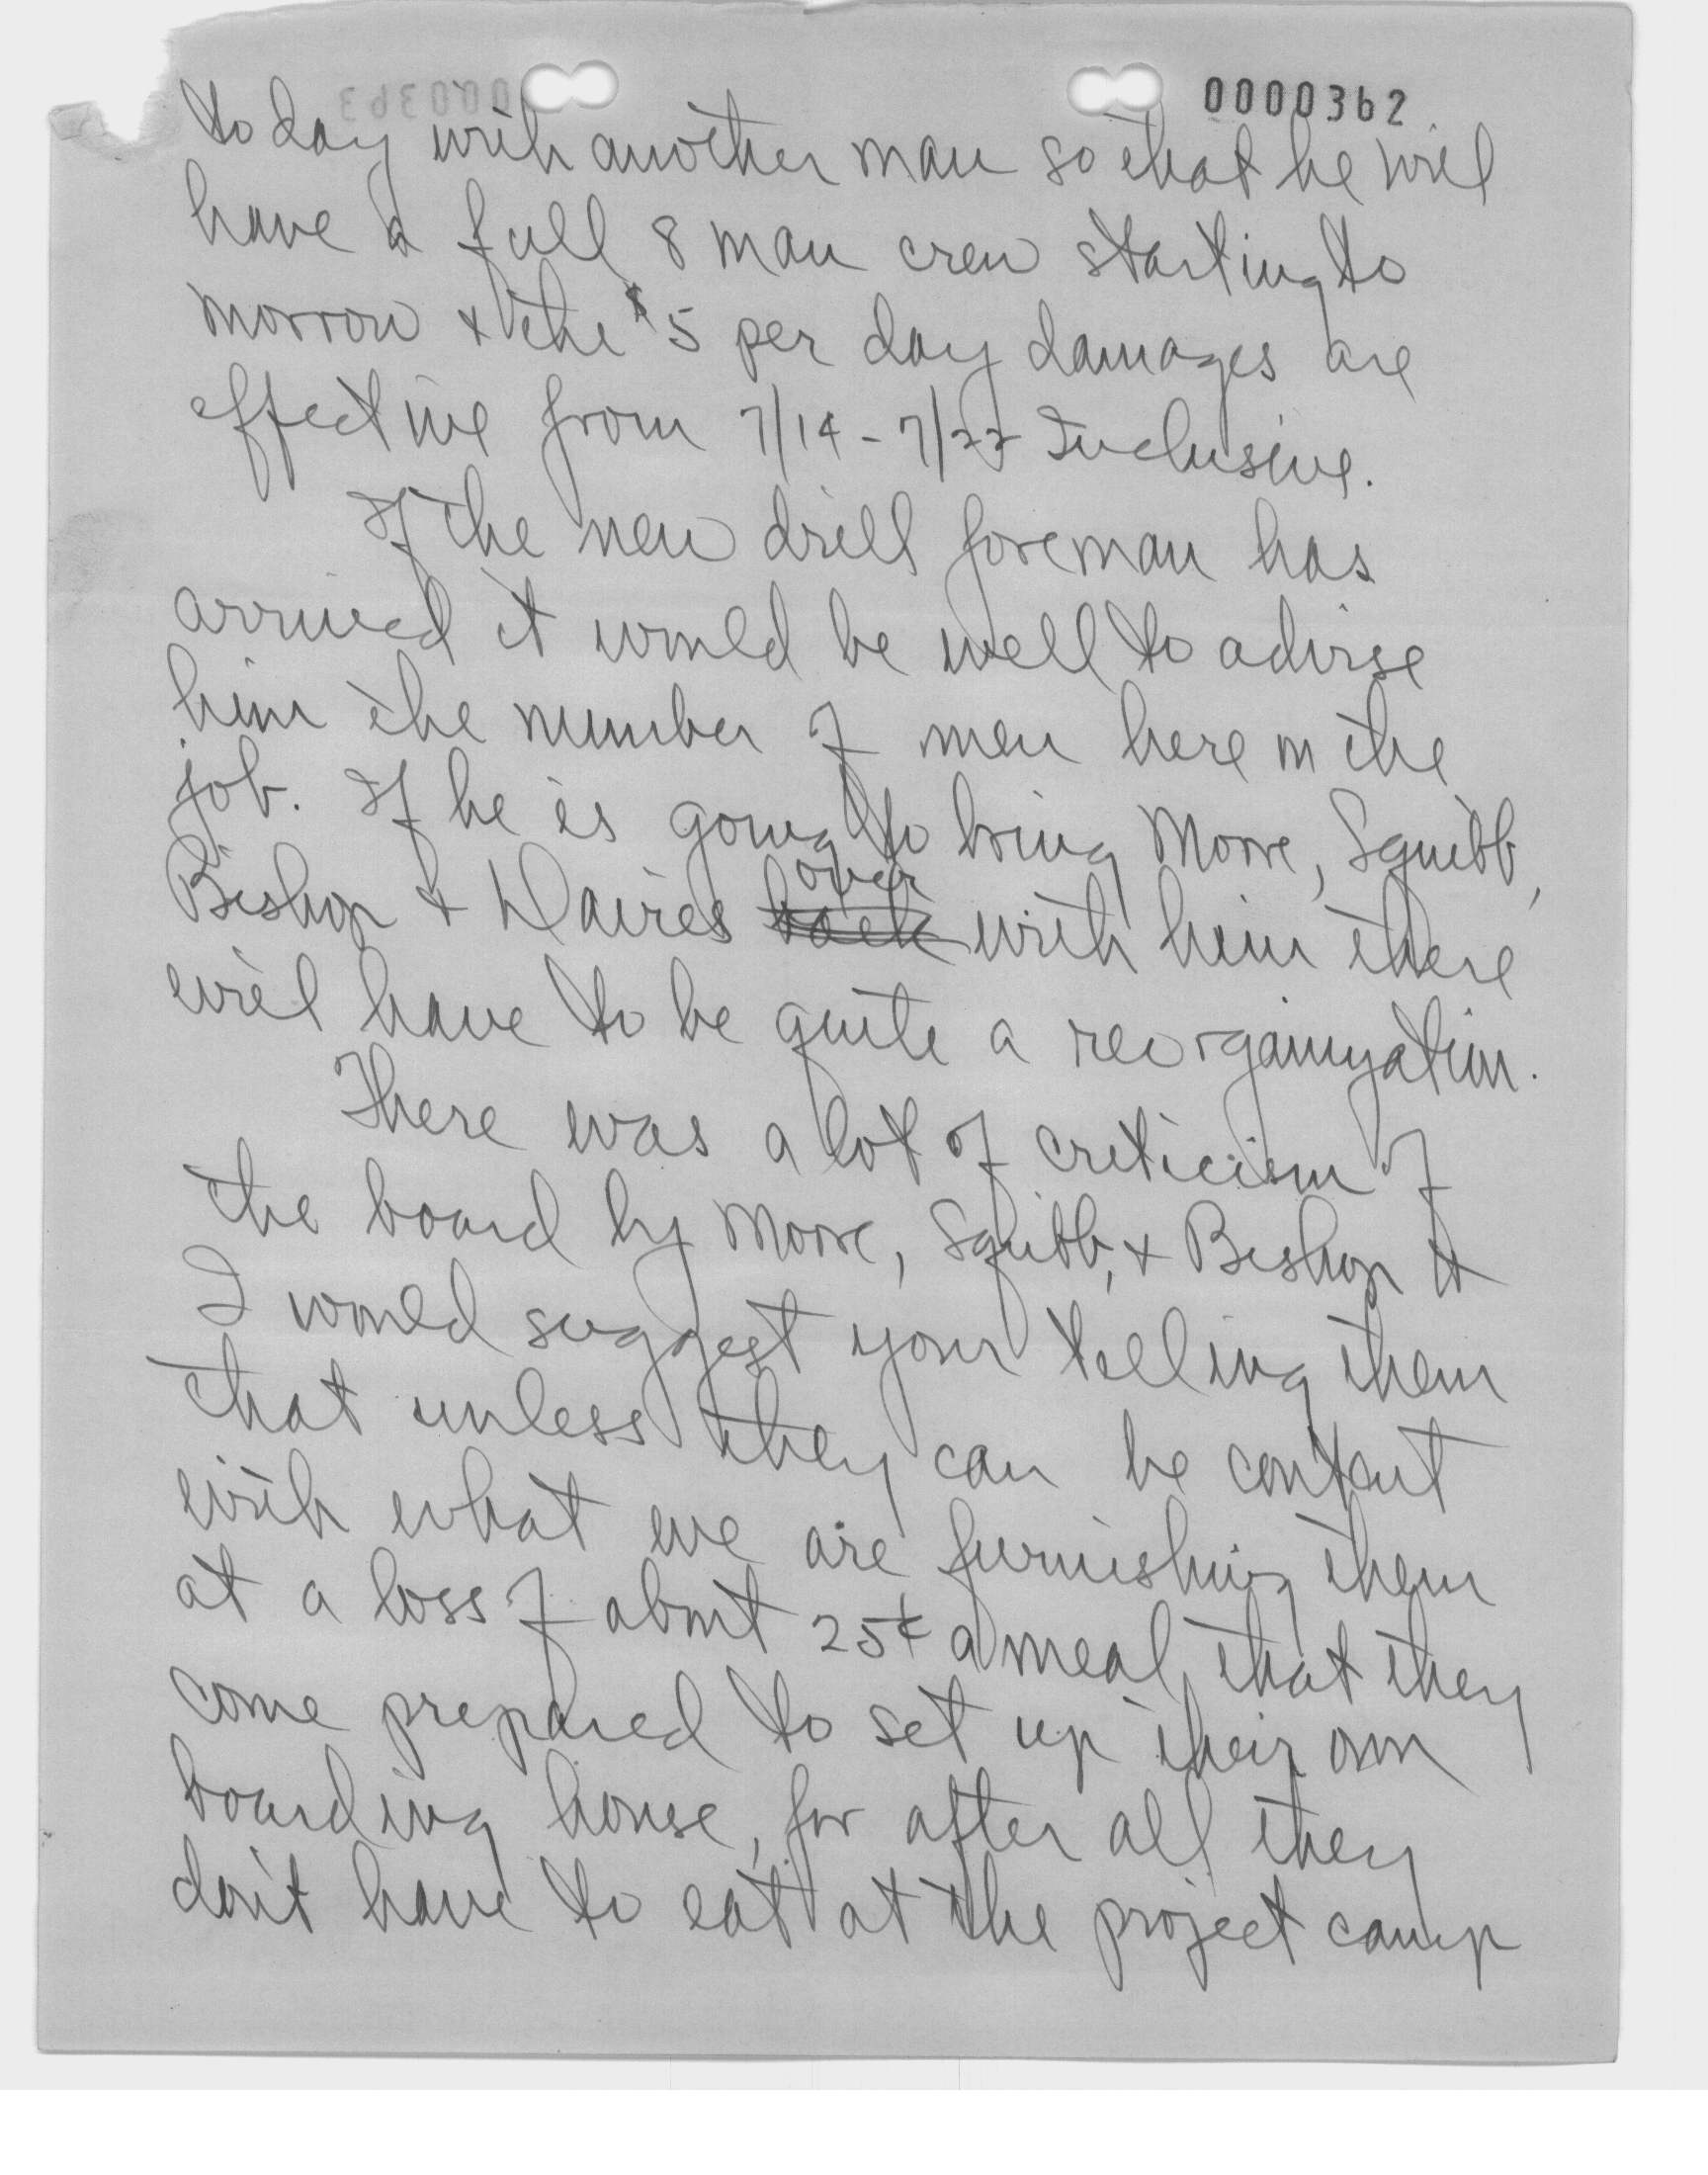 0000362
to day with another man so that he will
have a full 8 man crew starting to
morrow & the $5 per day damages are
effective from 7/14 - 7/22 Inclusive.
If the new drill foreman has
arrived it would be well to advise
him the number of men here on the
job. If he is going to bring Moore, Squibb,
Bishop & Davies over with him there
will have to be quite a reorganization.
There was a lot of criticism of
the board by Moore, Squibb, & Bishop &
I would suggest your telling them
that unless they can be content
with what we are furnishing them
at a loss of about 25¢ a meal, that they
come prepared to set up their own
boarding house, for after all they
don't have to eat at the project camp